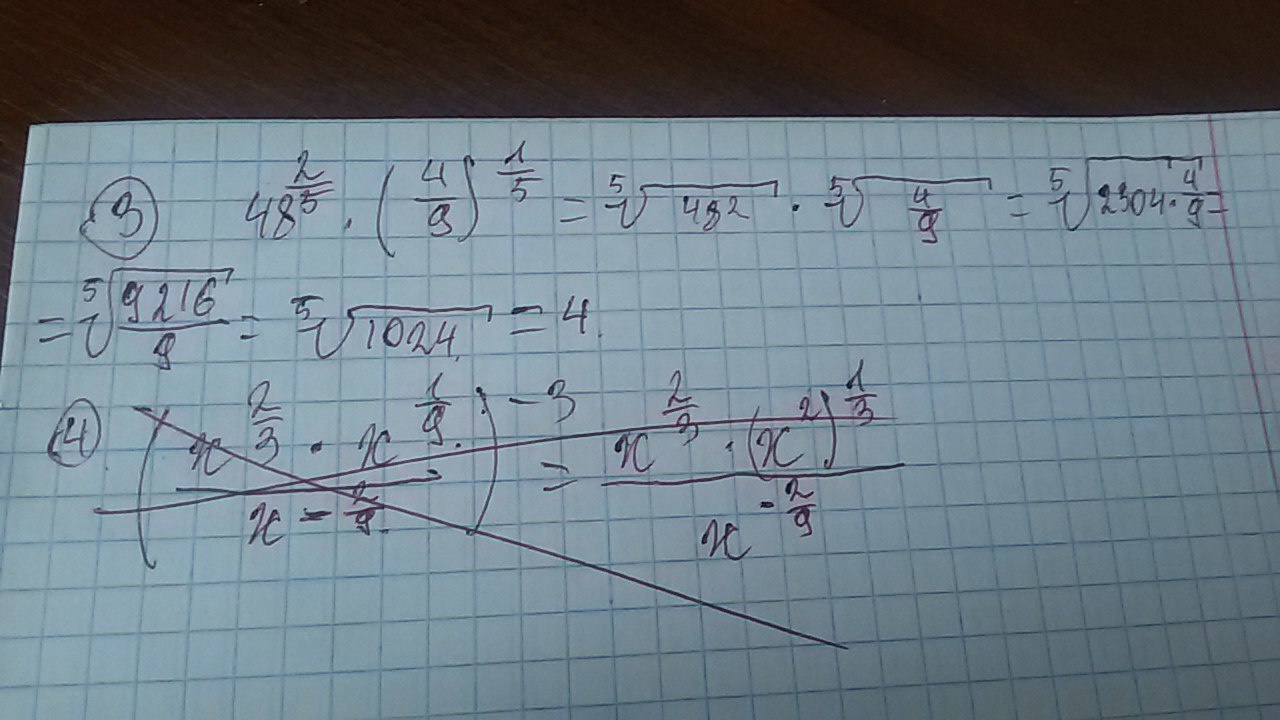 ③ 48^(2/5) · (4/9)^(1/5) = ⁵√(48²) · ⁵√(4/9) = ⁵√(2304 · 4/9) =
= ⁵√(9216/9) = ⁵√(1024) = 4.
④ ((x^(2/3) · x^(1/9))/(x^(-2/9)))^(-3) = (x^(2/3) · (x²)^(1/3))/(x^(-2/9))